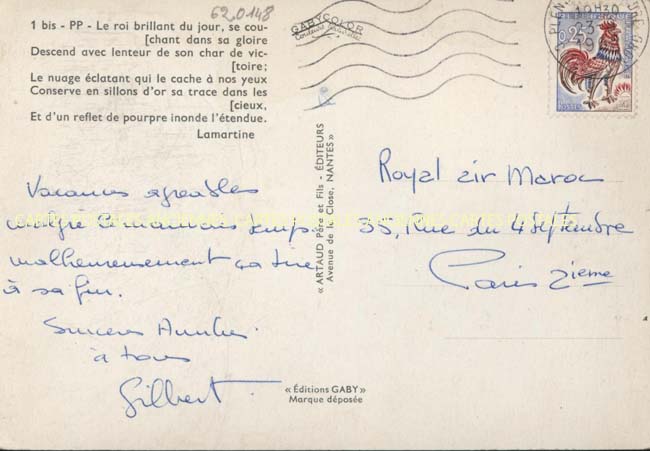 62.0148
1 bis - PP - Le roi brillant du jour, se cou-
[chant dans sa gloire
Descend avec lenteur de son char de vic-
[toire;
Le nuage éclatant qui le cache à nos yeux
Conserve en sillons d'or sa trace dans les
[cieux,
Et d'un reflet de pourpre inonde l'étendue.
Lamartine
Vacances agréables
malgré le mauvais temps
malheureusement ça tire
à sa fin.
Sincères Amitiés
à tous
Gilbert.
GABYCOLOR
« ARTAUD Père et Fils - ÉDITEURS
Avenue de la Close, NANTES »
« Éditions GABY »
Marque déposée
10H30
0,25
Royal air Maroc
35, Rue du 4 Septembre
Paris 2ieme